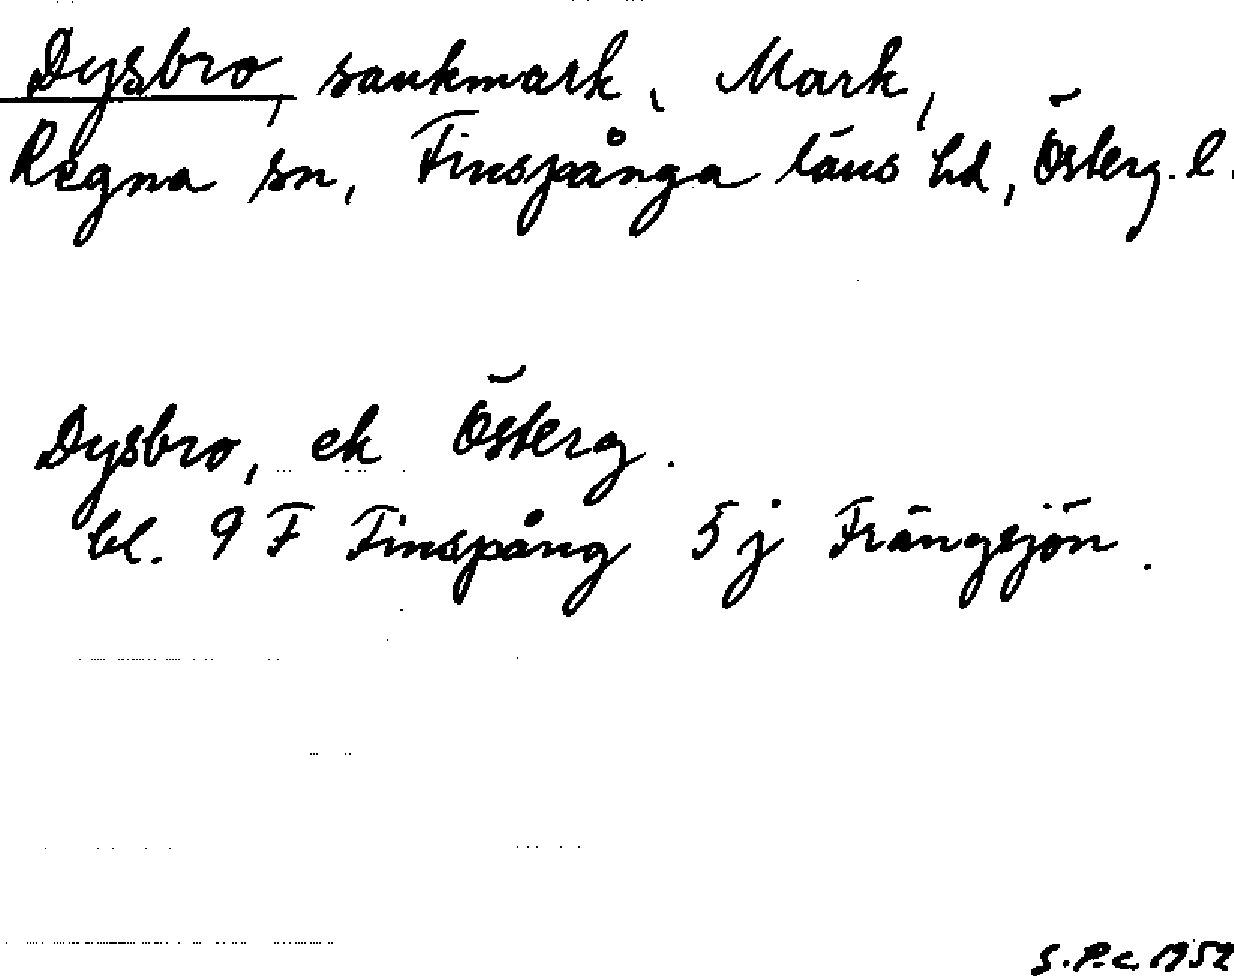 Dysbro, sankmark, Mark,
Regna sn, Finspånga läns hd, Österg. l.
Dysbro, ek Österg.
bl. 9 F Finspång 5 j Frängsjön.
S.P.c. 1952